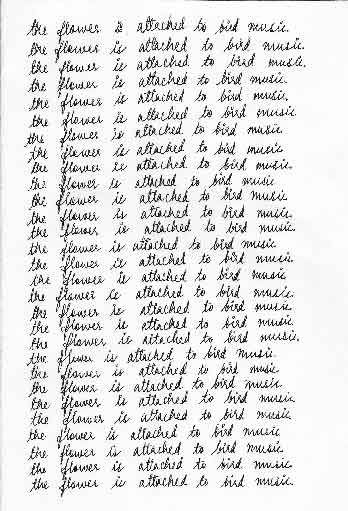 the flower is attached to bird music.
the flower is attached to bird music.
the flower is attached to bird music.
the flower is attached to bird music.
the flower is attached to bird music.
the flower is attached to bird music.
the flower is attached to bird music
the flower is attached to bird music
the flower is attached to bird music.
the flower is attached to bird music
the flower is attached to bird music.
the flower is attached to bird music.
the flower is attached to bird music.
the flower is attached to bird music
the flower is attached to bird music.
the flower is attached to bird music
the flower is attached to bird music.
the flower is attached to bird music.
the flower is attached to bird music.
the flower is attached to bird music.
the flower is attached to bird music.
the flower is attached to bird music
the flower is attached to bird music.
the flower is attached to bird music.
the flower is attached to bird music.
the flower is attached to bird music
the flower is attached to bird music.
the flower is attached to bird music.
the flower is attached to bird music.